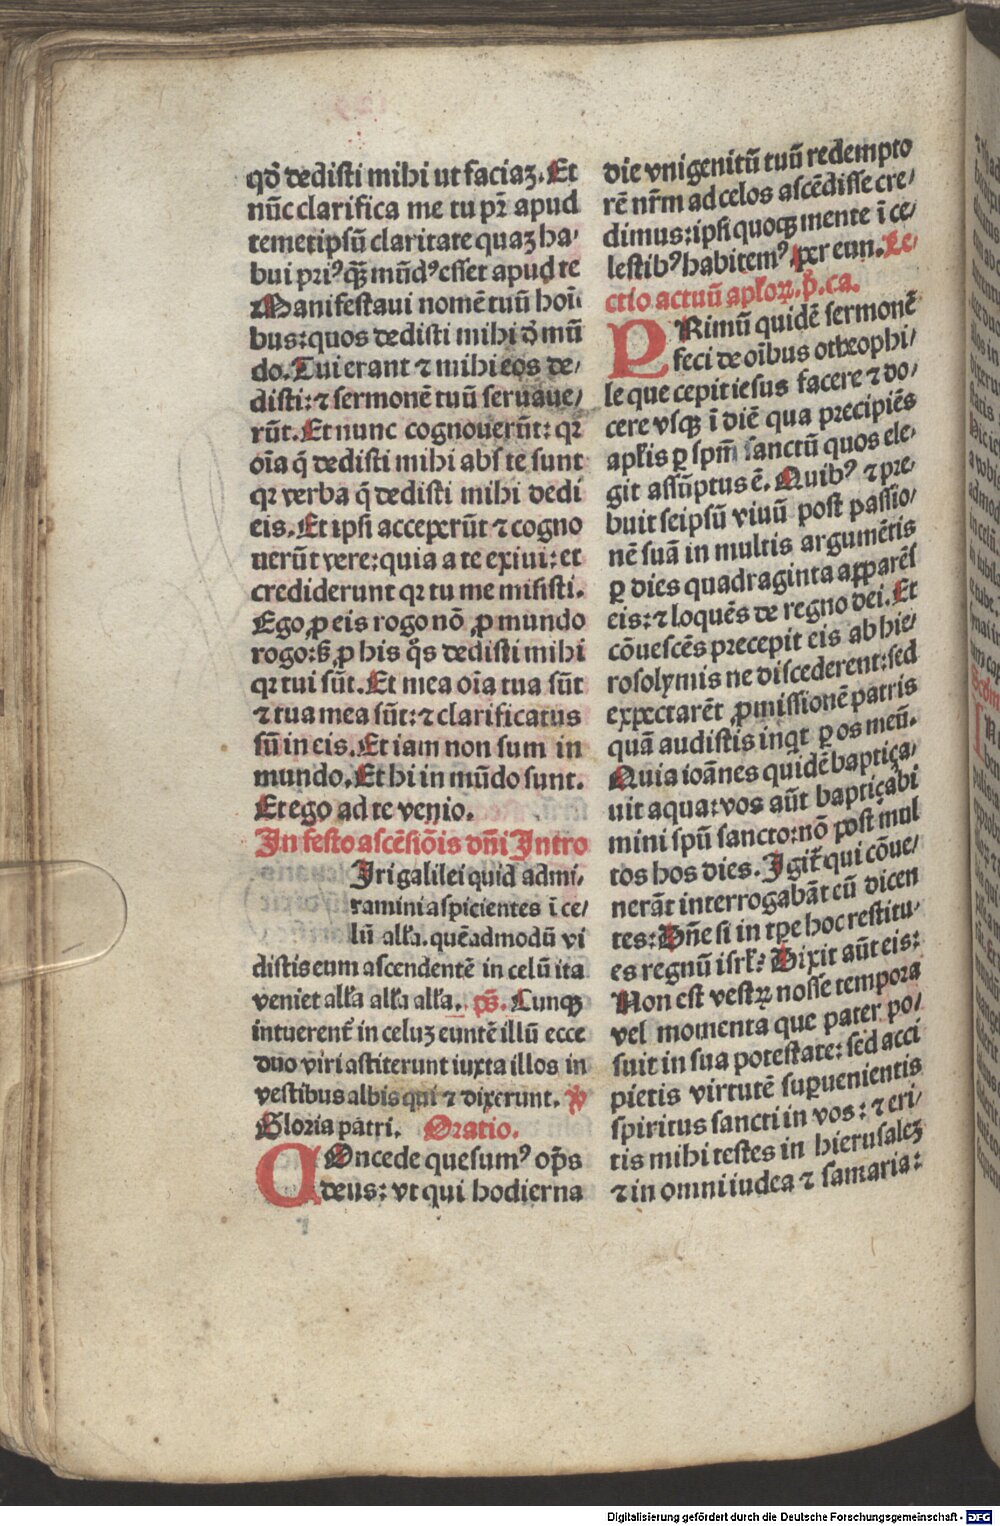 qđ dedisti mihi ut faciaꝫ. Et
nūc clarifica me tu pr̄ apud
temetipsū claritate quaꝫ ha⸗
bui priꝰ qꝫ̄ mūdꝰ esset apud te
Manifestaui nomē tuū hoī⸗
bus: quos dedisti mihi đ mū
do. Tui erant ⁊ mihi eos de⸗
disti: ⁊ sermonē tuū seruaue⸗
rūt. Et nunc cognouerūt: qꝛ
oīa q̄ dedisti mihi abs te sunt
qꝛ verba q̄ dedisti mihi dedi
eis. Et ipsi acceperūt ⁊ cogno
uerūt vere: quia a te exiui: et
crediderunt qꝛ tu me misisti.
Ego ꝓ eis rogo nō ꝓ mundo
rogo: sꝫ ꝓ his qͦs dedisti mihi
qꝛ tui sūt. Et mea oīa tua sūt
⁊ tua mea sūt: ⁊ clarificatus
sū in eis. Et iam non sum in
mundo. Et hi in mūdo sunt.
Et ego ad te venio.
In festo ascēsiōis dn̄i Intro
Iri galilei quid admi⸗
ramini aspicientes ī ce⸗
lū all'a. quēadmodū vi
distis eum ascendentē in celū ita
veniet all'a all'a all'a. ps̄. Cunqꝫ
intuerent᷑ in celuꝫ euntē illū ecce
duo viri astiterunt iuxta illos in
vestibus albis qui ⁊ dixerunt. ꝟ
Gloria patri. Oratio.
COncede quesumꝰ op̄s
deus: vt qui hodierna
die vnigenitū tuū redempto
rē nr̄m ad celos ascēdisse cre⸗
dimus: ipsi quoqꝫ mente ī ce⸗
lestibꝰ habitemꝰ. per eun. Le⸗
ctio actuū apl'oꝝ. p̄. ca.
PRimū quidē sermonē
feci de oībus otheophi⸗
le que cepit iesus facere ⁊ do⸗
cere vsqꝫ ī diē qua precipiēs
apl'is ꝑ spm̄ sanctū quos ele⸗
git assūptus ē. Quibꝰ ⁊ pre⸗
buit seipsū viuū post passio⸗
nē suā in multis argumētis
ꝑ dies quadraginta apparēs
eis: ⁊ loquēs de regno dei. Et
cōuescēs precepit eis ab hie⸗
rosolymis ne discederent: sed
expectarēt ꝓmissionē patris
quā audistis inqt ꝑ os meū.
Quia ioānes quidē baptiça⸗
uit aqua: vos aūt baptiçabi
mini spū sancto: nō post mul
tos hos dies. Igit᷑ qui cōue⸗
nerāt interrogabāt eū dicen
tes: Dn̄e si in tꝑe hoc restitu⸗
es regnū isrl'? Dixit aūt eis:
Non est vestꝝ nosse tempora
vel momenta que pater po⸗
suit in sua potestate: sed acci
pietis virtutē suꝑuenientis
spiritus sancti in vos: ⁊ eri⸗
tis mihi testes in hierusaleꝫ
⁊ in omni iudea ⁊ samaria:
Digitalisierung gefördert durch die Deutsche Forschungsgemeinschaft - DFG